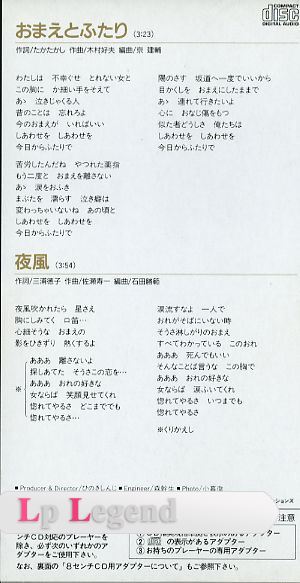 COMPACT
disc
DIGITAL AUDIO
おまえとふたり (3:23)
作詞/たかたかし 作曲/木村好夫 編曲/京 建輔
わたしは 不幸ぐせ とれない女と
この胸に か細い手をそえて
あゝ 泣きじゃくる人
昔のことは 忘れろよ
今のおまえが いればいい
しあわせを しあわせを
今日からふたりで
苦労したんだね やつれた薬指
もう二度と おまえを離さない
あゝ 涙をおふき
まぶたを 濡らす 泣き癖は
変わっちゃいないね あの頃と
しあわせを しあわせを
今日からふたりで
陽のさす 坂道へ一度でいいから
目かくしを おまえにしたままで
あゝ 連れて行きたいよ
心に おなじ傷をもつ
似た者どうしさ 俺たちは
しあわせを しあわせを
今日からふたりで
夜風 (3:54)
作詞/三浦徳子 作曲/佐瀬寿一 編曲/石田勝範
夜風吹かれたら 星さえ
胸にしみてく 口笛…
心細そうな おまえの
影をひきずり 熱くするよ
※
あああ 離さないよ
探しあてた そうさこの恋を…
あああ おれの好きな
女ならば 笑顔見せてくれ
惚れてやるさ どこまででも
惚れてやるさ…
涙流すなよ 一人で
おれがそばにいない時
そうさ淋しがりのおまえ
すべてわかっている このおれ
あああ 死んでもいい
そんなことは言うな この胸で
あああ おれの好きな
女ならば 涙ふいてくれ
惚れてやるさ いつまでも
惚れてやるさ…
※くりかえし
■Producer & Director/ひのきしんじ ■Engineer/森幹生 ■Photo/小暮徹
Lp Legend
ションズ
注意
ンチCD対応のプレーヤーを
除き、必ず次のいずれかのア
ダプターをご使用下さい。
② の表示があるアダプター
③お持ちのプレーヤーの専用アダプター
なお、裏面の「8センチCD用アダプターについて」もご参照下さい。